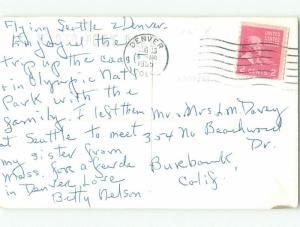 Flying Seattle 2 Denver.
Enjoyed the
trip up the
in Olympic Nat'l
Park with the
family. I left them
at Seattle to meet
my sister from
Mass. for a few da
in Denver. Love
Betty Nelson
DENVER
1955
COLO.
UNITED STATES
POSTAGE
2 CENTS 2
Mr + Mrs L. M. Davey
354 No Beachwood
Dr.
Burbank,
Calif.